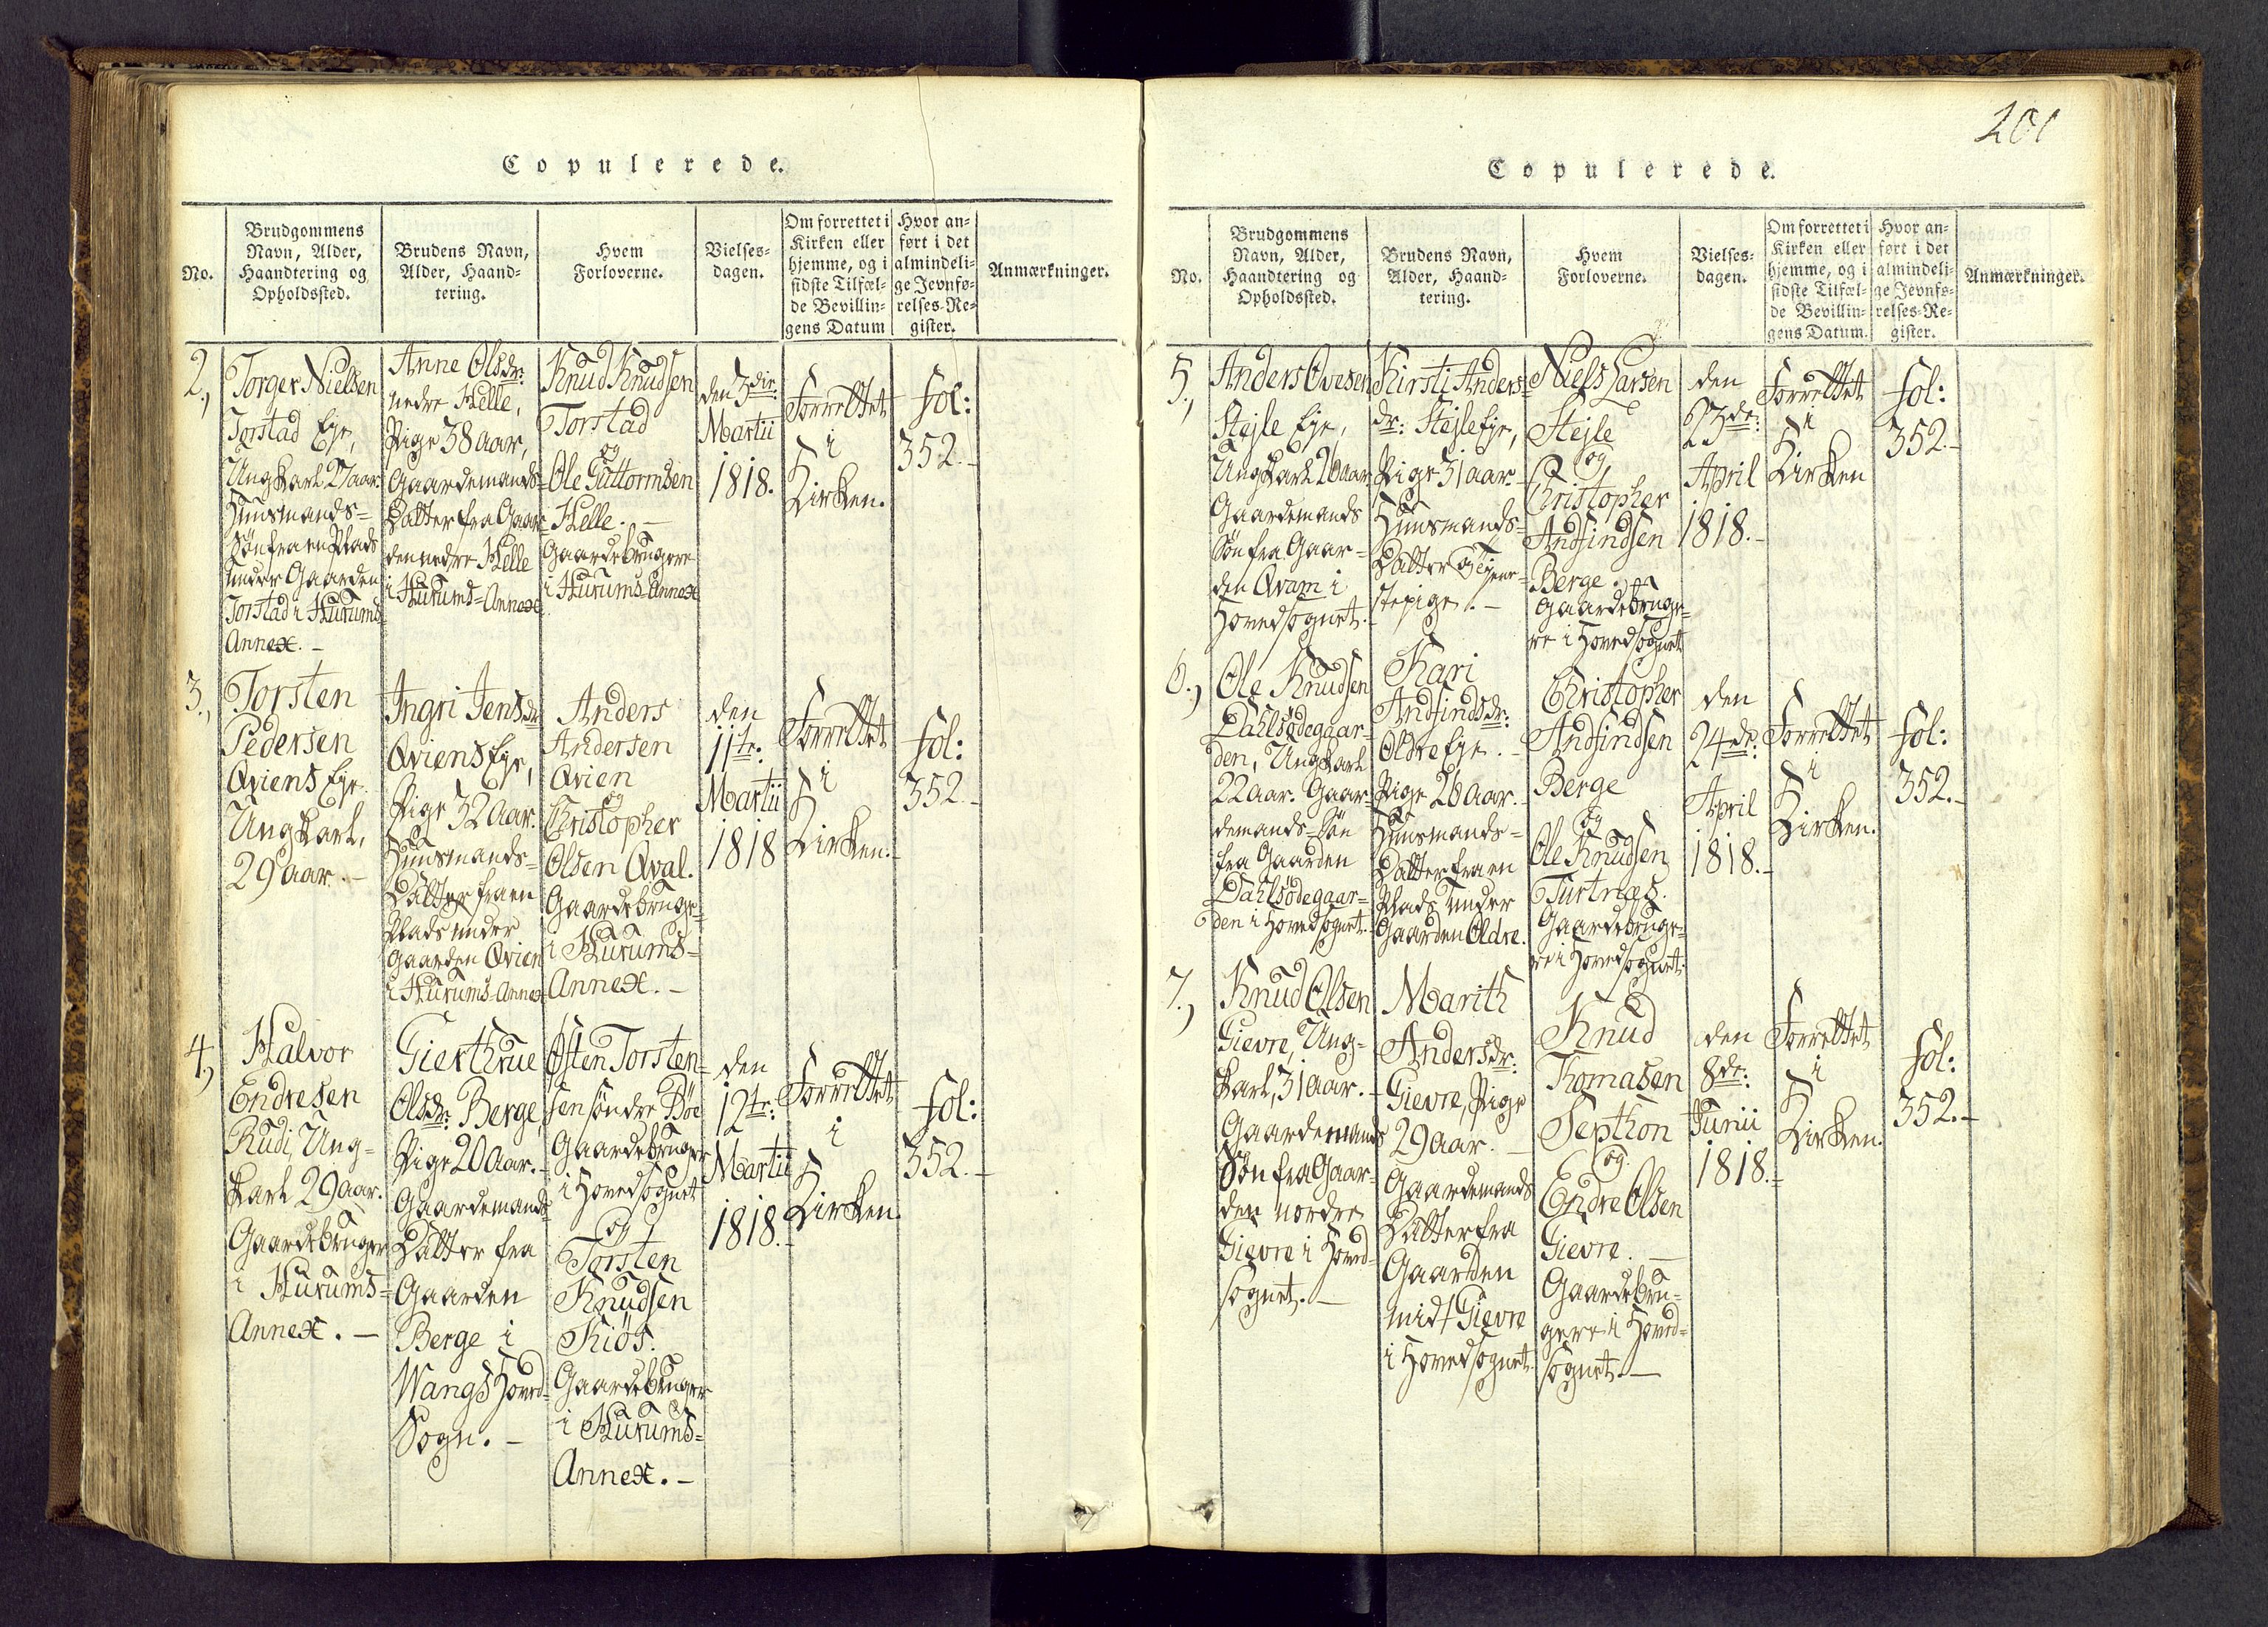 Copulerede.
No.
Brudgommens
Navn, Alder,
Haandtering og
Opholdssted.
Brudens Navn,
Alder, Haand-
tering.
Hvem
Forloverne.
Vielses-
dagen.
Om forrettet i
Kirken eller
hjemme, og i
sidste Tilfæl-
de Bevillin-
gens Datum
Hvor an-
ført i det
almindeli-
ge Jevnfø-
relses-Re-
gister.
Anmærkninger.
2.,
Torger Nielsen
Torstad Eje,
Ungkarl 27 aar.
Huusmands=
Søn fra en Plads
under Gaarden
Torstad i Hurums
Annex. -
Anne Olsdr:
nedre Helle,
Pige 38 aar,
Gaardemands=
Datter fra Gaar-
den nedre Helle
i Hurums-Annex
Knud Knudsen
Torstad
og
Ole Guttormsen
Helle. -
Gaardebrugere
i Hurums-Annex
den 3die
Martii
1818.
Forrettet
i
Kirken.
fol:
352. -
3.,
Torsten
Pedersen
Qviens Eje.
Ungkarl,
29 aar. -
Ingri Jensdr
Qviens Eje,
Pige 32 aar.
Huusmands-
Datter fra en
Plads under
Gaarden Qvien
i Hurums-Annex
Anders
Andersen
Qvien
og
Christopher
Olsen Qval.
Gaardebruge-
i Hurums-
Annex. -
den
11te:
Martii
1818
Forrettet
i
Kirken. -
fol:
352. -
4.,
Halvor
Endresen
Rudi, Ung-
karl 29 aar.
Gaardebruger
i Hurums=
Annex. -
Gierthrue
Olsdr: Berge,
Pige 20 Aar. -
Gaardemands
Datter fra
Gaarden
Berge i
Wangs Hoved-
Sogn. -
Østen Torsten-
sen søndre Böe
Gaardebruger
i Hovedsognet
og
Torsten
Knudsen
Kiös.
Gaardebruger
i Hurums=
Annex. -
den
12te:
Martii
1818. -
Forrettet
i
Kirken.
fol:
352. -
201
Copulerede.
No.
Brudgommens
Navn, Alder,
Haandtering og
Opholdssted.
Brudens Navn,
Alder, Haand-
tering.
Hvem
Forloverne.
Vielses-
dagen.
Om forrettet i
Kirken eller
hjemme, og i
sidste Tilfæl-
de Bevillin-
gens Datum.
Hvor an-
ført i det
almindeli-
ge Jevnfø-
relses-Re-
gister.
Anmærkninger.
5.,
Anders Ovesen
Stejle Eje,
Ungkarl 26 aar.
Gaardemands
Søn fra Gaar-
den Qvam i
Hovedsognet.
Kirsti Anders-
dr: Stejle Eje,
Pige 31 aar. -
Huusmands=
Datter og Tjene-
stepige. -
Niels Larsen
Stejle
og
Christopher
Andfindsen
Berge.
Gaardebruge-
re i Hovedsognet
den
23de:
April
1818. -
Forrettet
i
Kirken
fol:
352. -
6.,
Ole Knudsen
Dahlsödegaar-
den, Ungkarl
22 aar. Gaar-
demands-Søn
fra Gaarden
Dahlsödegaar=
den i Hovedsognet.
Kari
Andfindsdr:
Öldre Eje. -
Pige 26 Aar. -
Huusmands=
Datter fra en
Plads under
Gaarden Öldre.
Christopher
Andfindsen
Berge
og
Ole Knudsen
Turtnæs.
Gaardebruge-
re i Hovedsognet.
den
24de:
April
1818. -
Forrettet
i
Kirken.
fol:
352. -
7.,
Knud Olsen
Gievre, Ung-
karl, 31 aar. -
Gaardemands
Søn fra Gaar-
den nordre
Gievre i Hoved-
sognet. -
Marith
Andersdr:
Gievre, Pige
29 aar. -
Gaardemands
Datter fra
Gaarden
midt Gievre
i Hovedsognet
Knud
Thomasen
Septhon
og
Endre Olsen
Gievre. -
Gaardebru-
gere i Hoved-
sognet. -
den
8de:
Junii
1818. -
Forrettet
i
Kirken.
fol:
352. -